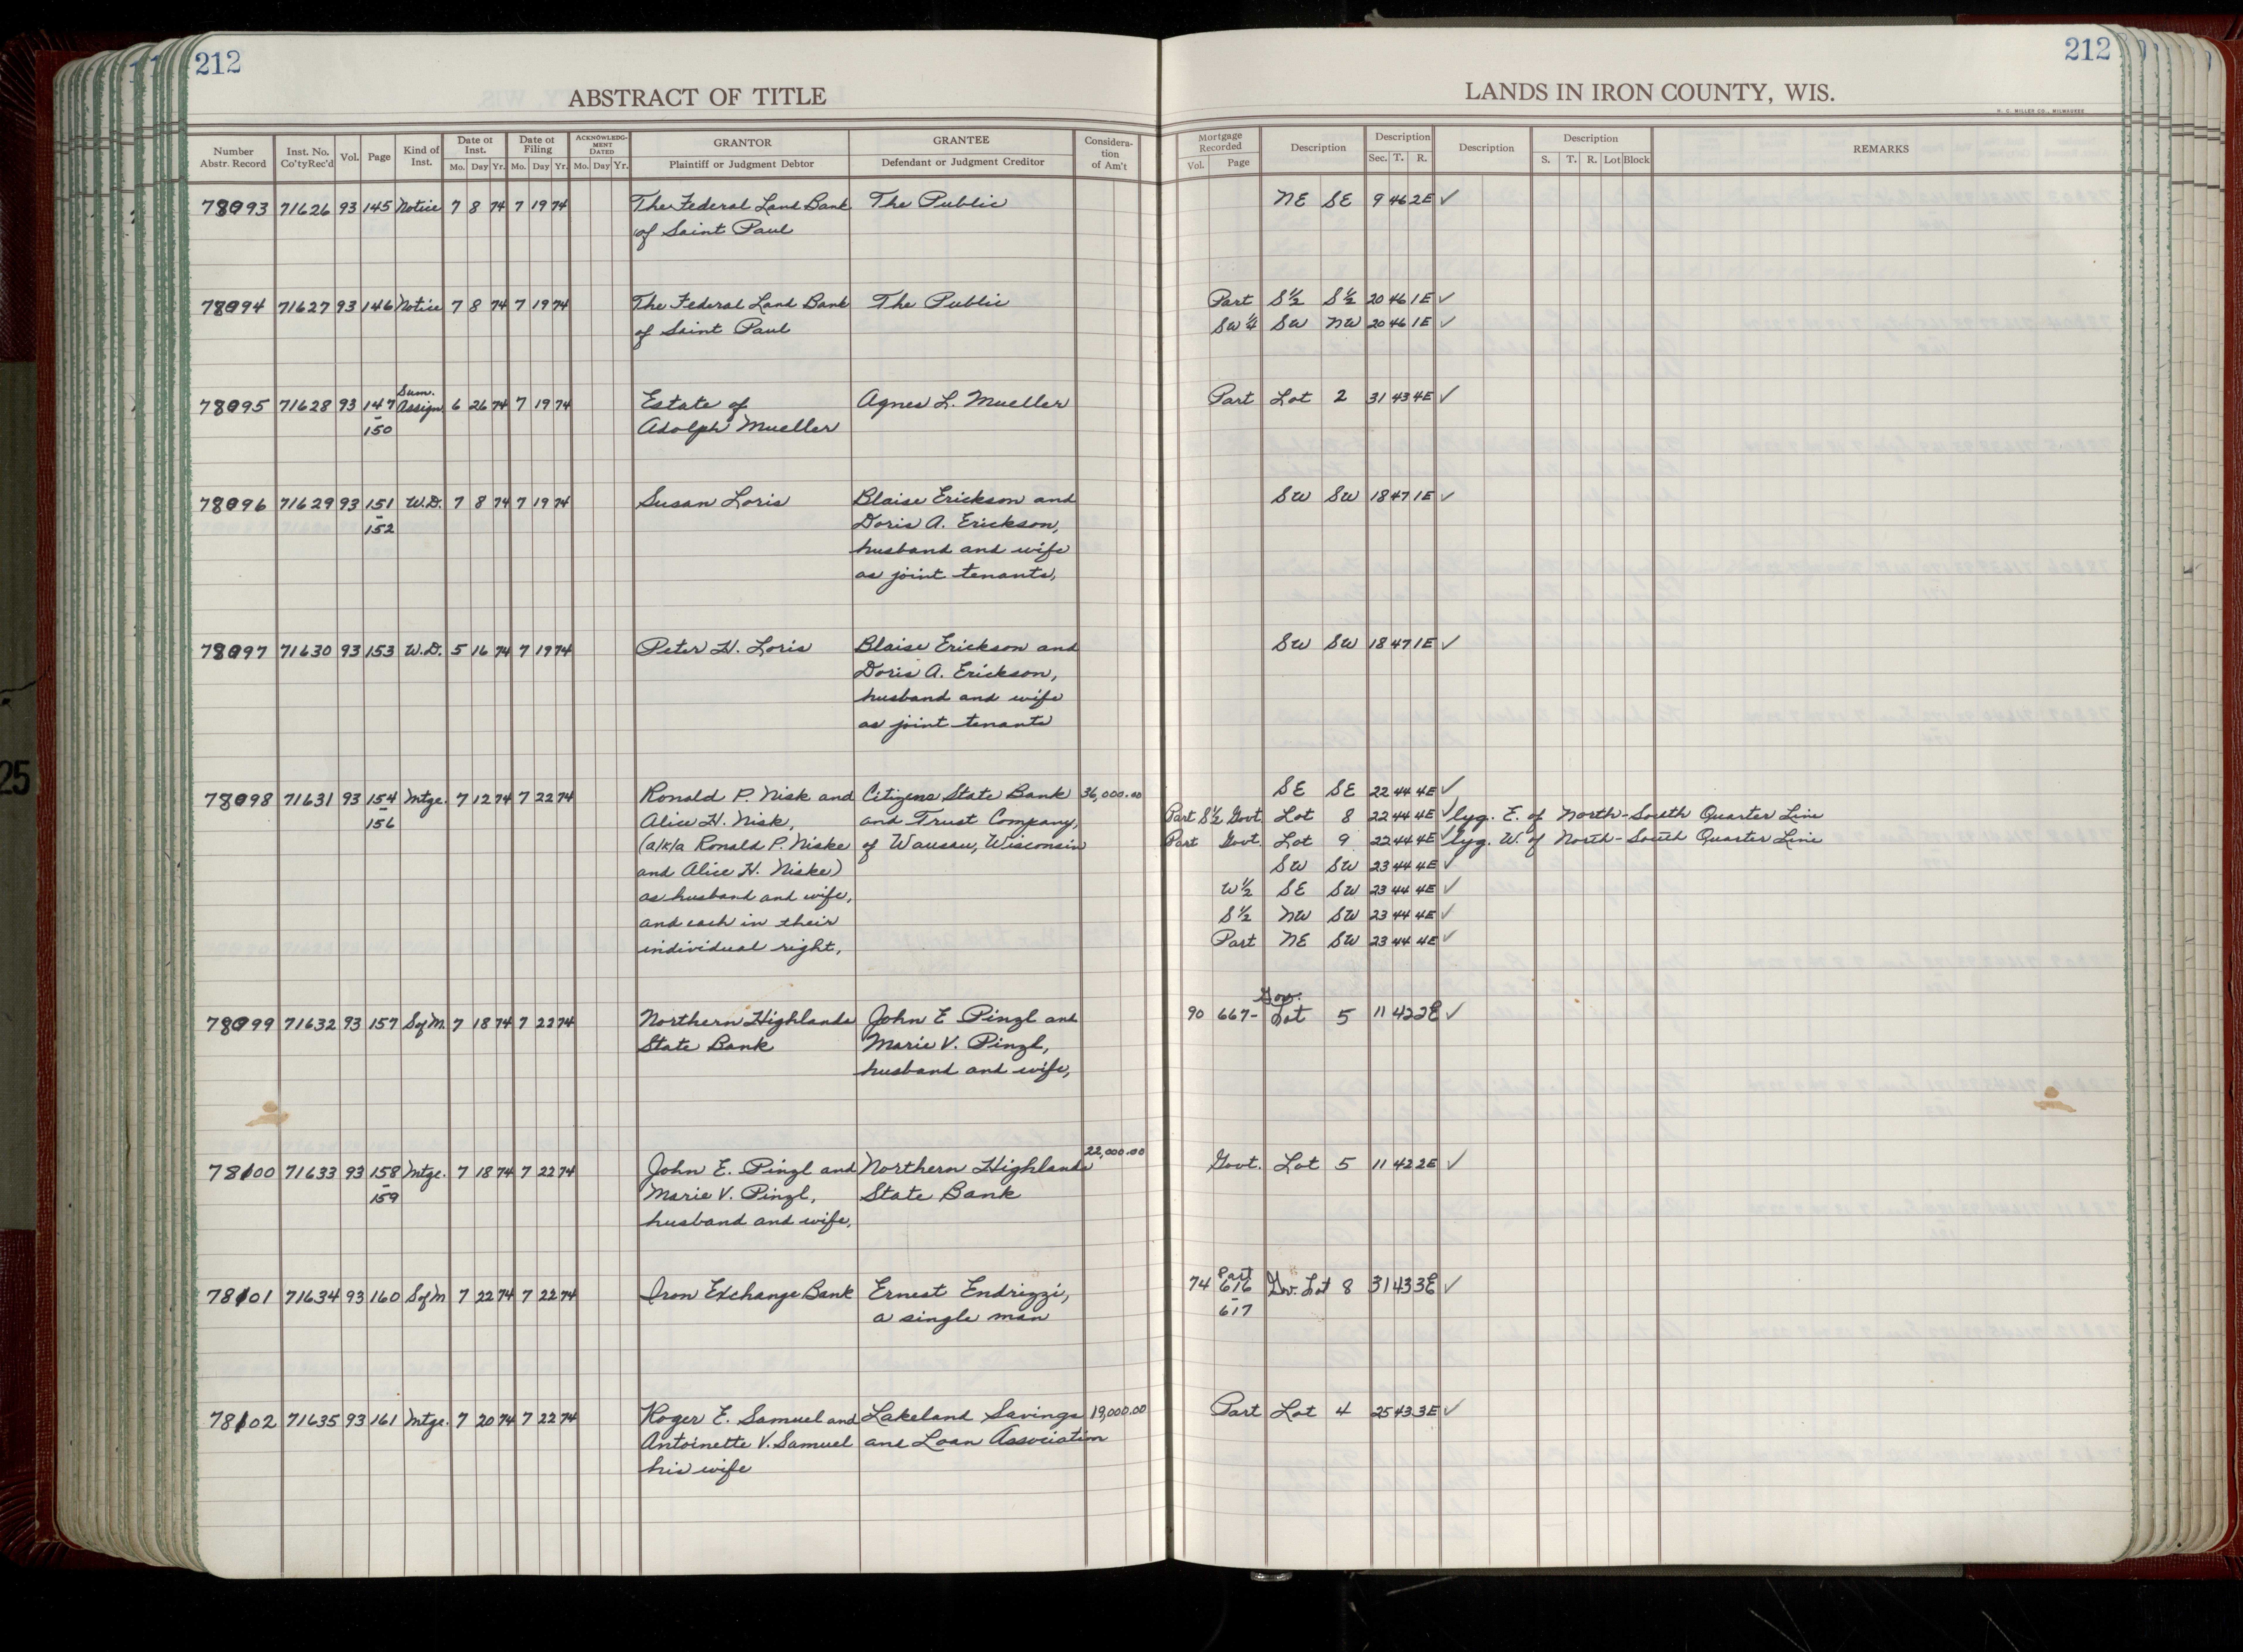 212
212
ABSTRACT OF TITLE
LANDS IN IRON COUNTY, WIS.
H. C. MILLER CO., MILWAUKEE
Number Abstr. Record | Inst. No. Co'tyRec'd | Vol. | Page | Kind of Inst. | Date of Inst. Mo. Day Yr. | Date of Filing Mo. Day Yr. | ACKNOWLEDGMENT DATED Mo. Day Yr. | GRANTOR Plaintiff or Judgment Debtor | GRANTEE Defendant or Judgment Creditor | Consideration of Am't | Mortgage Recorded Vol. Page | Description | Description Sec. T. R. | Description | Description S. T. R. Lot Block | REMARKS
78093 71626 93 145 Notice 7 8 74 7 19 74 The Federal Land Bank The Public NE SE 9 46 2E ✓
of Saint Paul
78094 71627 93 146 Notice 7 8 74 7 19 74 The Federal Land Bank The Public Part S½ S½ 20 46 1E ✓
of Saint Paul SW¼ SW NW 20 46 1E ✓
Sum.
78095 71628 93 147 Assign 6 26 74 7 19 74 Estate of Agnes L. Mueller Part Lot 2 31 43 4E ✓
-150 Adolph Mueller
78096 71629 93 151 W.D. 7 8 74 7 19 74 Susan Loris Blaise Erickson and SW SW 18 47 1E ✓
-152 Doris A. Erickson,
husband and wife
as joint tenants,
78097 71630 93 153 W.D. 5 16 74 7 19 74 Peter H. Loris Blaise Erickson and SW SW 18 47 1E ✓
Doris A. Erickson,
husband and wife
as joint tenants
78098 71631 93 154 Mtge. 7 12 74 7 22 74 Ronald P. Nisk and Citizens State Bank 36,000.00 SE SE 22 44 4E ✓
-156 Alice H. Nisk, and Trust Company, Part S½ Govt. Lot 8 22 44 4E ✓ lyg. E. of North-South Quarter Line
(a/k/a Ronald P. Niske of Wausau, Wisconsin Part Govt. Lot 9 22 44 4E ✓ lyg. W. of North-South Quarter Line
and Alice H. Niske) SW SW 23 44 4E ✓
as husband and wife, W½ SE SW 23 44 4E ✓
and each in their S½ NW SW 23 44 4E ✓
individual right, Part NE SW 23 44 4E ✓
Gov.
78099 71632 93 157 S of M. 7 18 74 7 22 74 Northern Highlands John E Pinzl and 90 667- Lot 5 11 42 2E ✓
State Bank Marie V. Pinzl,
husband and wife,
22,000.00
78100 71633 93 158 Mtge. 7 18 74 7 22 74 John E. Pinzl and Northern Highlands Govt. Lot 5 11 42 2E ✓
-159 Marie V. Pinzl, State Bank
husband and wife,
Part
78101 71634 93 160 S of M 7 22 74 7 22 74 Iron Exchange Bank Ernest Endrizzi, 74 616 Gov. Lot 8 31 43 3E ✓
a single man -617
78102 71635 93 161 Mtge. 7 20 74 7 22 74 Roger E. Samuel and Lakeland Savings 19,000.00 Part Lot 4 25 43 3E ✓
Antoinette V. Samuel and Loan Association
his wife
25